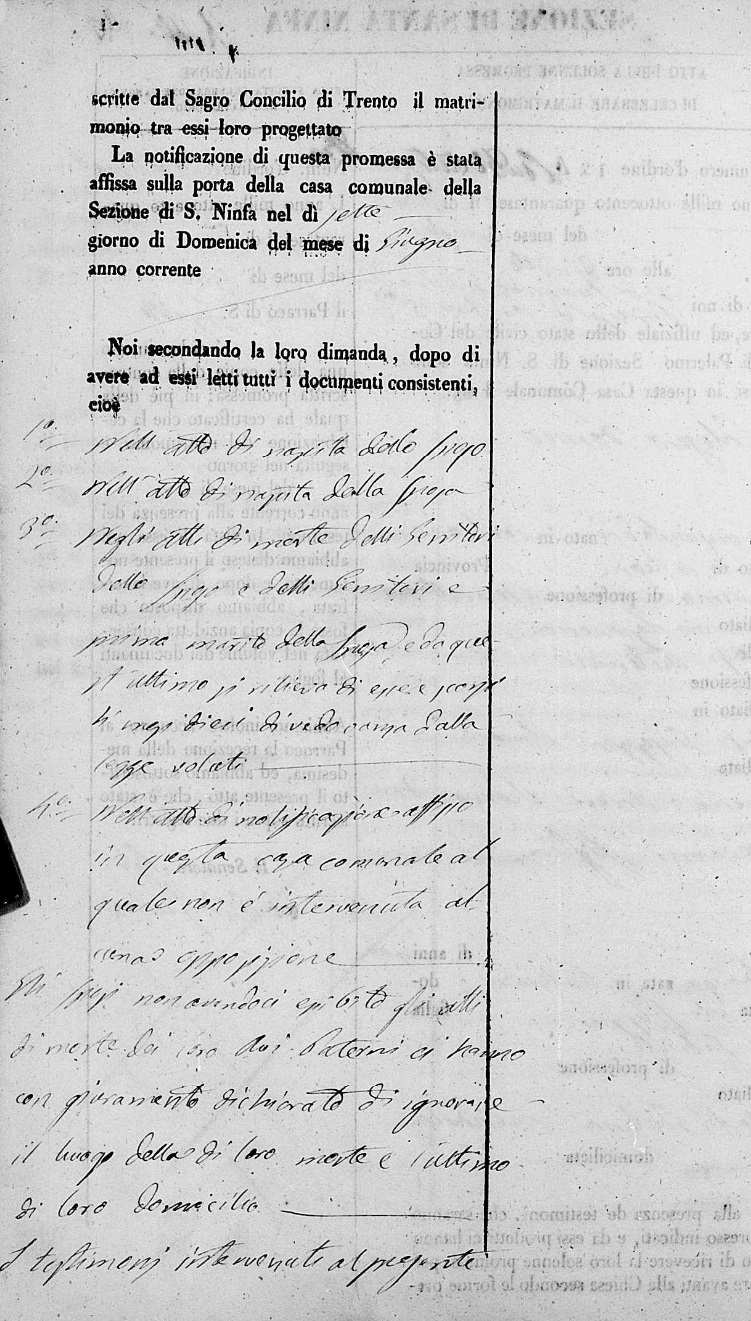 scritte dal Sagro Concilio di Trento il matri-
monio tra essi loro progettato
La notificazione di questa promessa è stata
affissa sulla porta della casa comunale della
Sezione di S. Ninfa nel dì sette
giorno di Domenica del mese di Giugno
anno corrente
Noi secondando la loro dimanda, dopo di
avere ad essi letti tutti i documenti consistenti,
cioè
1o: Nell'atto di nascita dello sposo
2o: Nell'atto di nascita della sposa
3o: Negli atti di morte delli Genitori
dello sposo e delli Genitori e
primo marito della sposa, e da que-
st'ultimo si rileva di essere scorsi
li mesi dieci di vedovanza dalla
legge voluti
4o: Nell'atto di notificazione affisso
in questa casa comunale al
quale non é intervenuta al-
cuna opposizione
Gli sposi non avendoci esibito gli atti
di morte dei loro Avi Paterni ci hanno
con giuramento dichiarato di ignorare
il luogo della di loro morte e l'ultimo
di loro domicilio
I testimonj intervenuti al presente